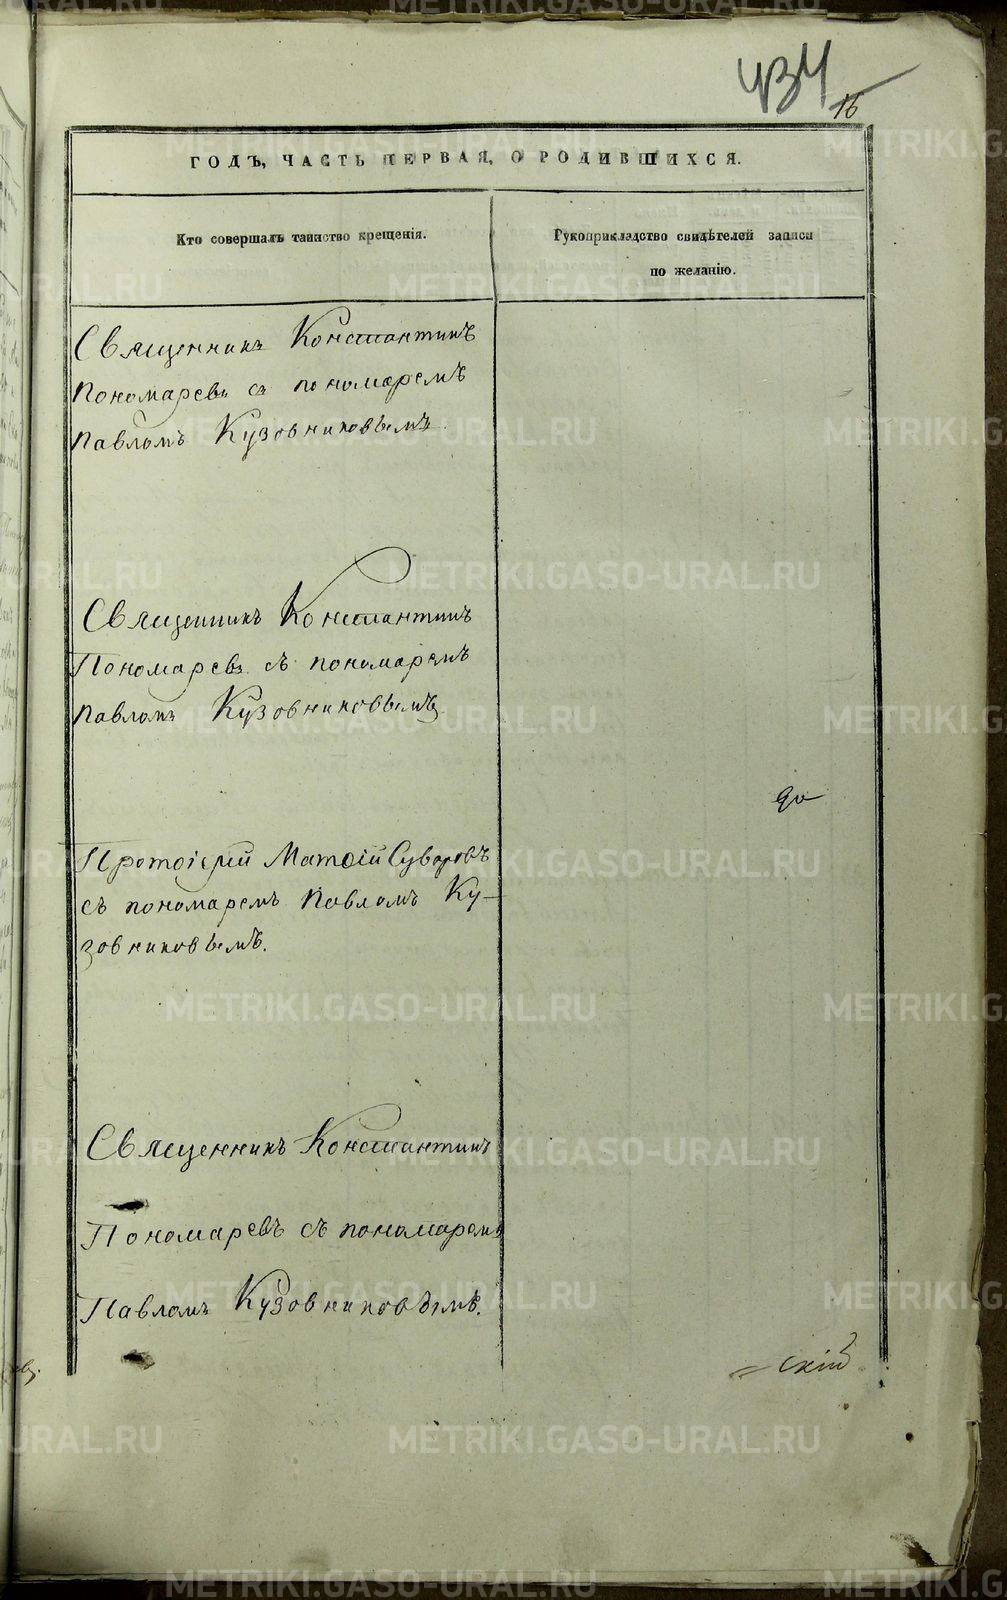 434
16
ГОДЪ, ЧАСТЬ ПЕРВАЯ, О РОДИВШИХСЯ.
Кто совершалъ таинство крещенія.
Рукоприкладство свидѣтелей записи
по желанію.
Священникъ Константинъ
Пономаревъ съ пономаремъ
Павломъ Кузовниковымъ.
Священникъ Константинъ
Пономаревъ съ пономаремъ
Павломъ Кузовниковымъ
Протоіерей Матѳій Суворовъ
съ пономаремъ Павломъ Ку-
зовниковымъ.
Священникъ Константинъ
Пономаревъ съ пономаремъ
Павломъ Кузовниковымъ.
скій
METRIKI.GASO-URAL.RU